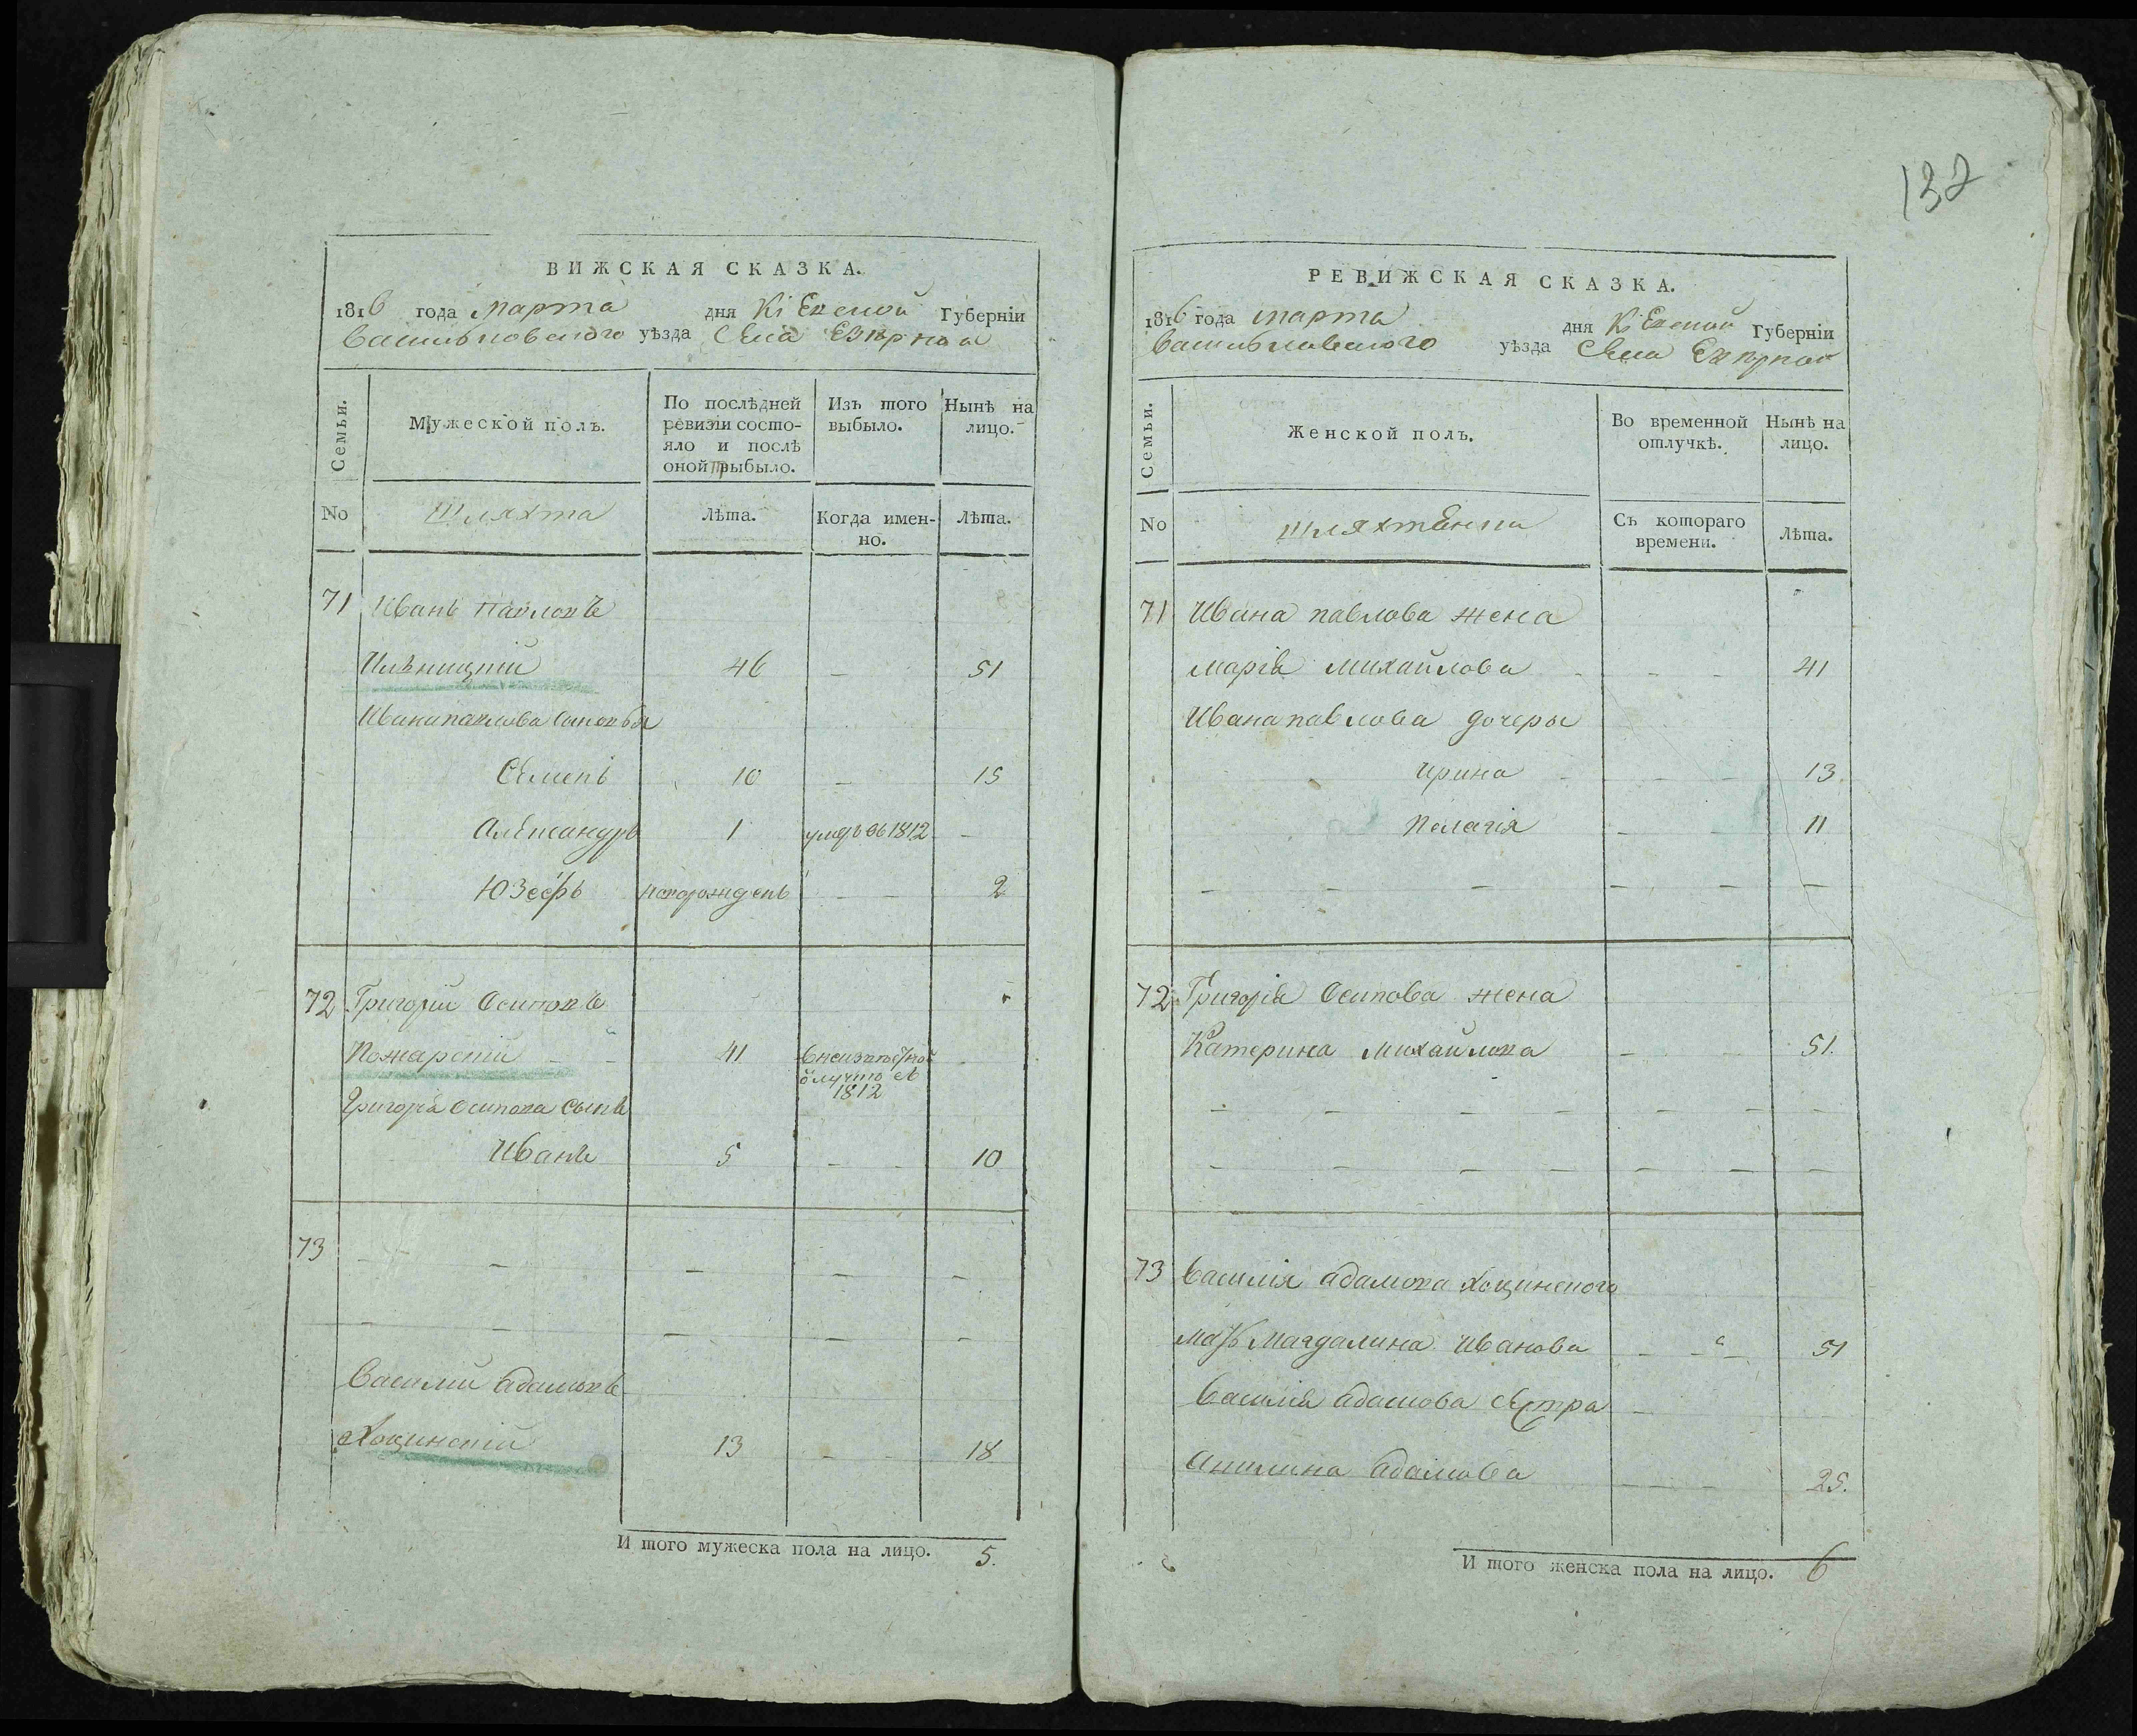 132
ВИЖСКАЯ СКАЗКА.
1816 года марта дня Кіевской Губерніи
Васильковского уѣзда Села
Семьи.
Мужеской полъ.
По послѣдней ревизіи состо-
яло и послѣ
оной прибыло.
Изъ того
выбыло.
Нынѣ на
лицо.
No
Шляхта
Лѣта.
Когда имен-
но.
Лѣта.
71 Иванъ Павловъ
Ильницкій 46 — 51
Ивана павлова Сыновья
Семенъ 10 — 15
Александръ 1 умре въ 1812 —
Юзефъ новорожденъ — — 2
72 Григорій Осиповъ
Пожарскій — — 41 в неизвестной —
отлучке съ
1812
Григорія Осипова Сынъ
Иванъ 5 — — 10
73 — — — — —
— — — — —
Василий Адамовъ
Хоцинскій 13 — — 18
И того мужеска пола на лицо. 5.
РЕВИЖСКАЯ СКАЗКА.
1816 года марта дня Кіевской Губерніи
Васильковского уѣзда Села
Семьи.
Женской полъ.
Во временной
отлучкѣ.
Нынѣ на
лицо.
No
шляхтенки
Съ котораго
времени.
Лѣта.
71 Ивана павлова жена
Марія Михайлова — — — — 41
Ивана павлова дочеры
Ирина — — — 13
Пелагія — — 11
— — — — — —
72 Григорія Осипова жена
Катерина Михайлова — — 51.
— — — — — — —
— — — — — — —
73 Василія Адамова Хоцинского
мать Магдалина Иванова — — — 51
Василія Адамова сестра —
Адамова — — — 25.
И того женска пола на лицо. 6